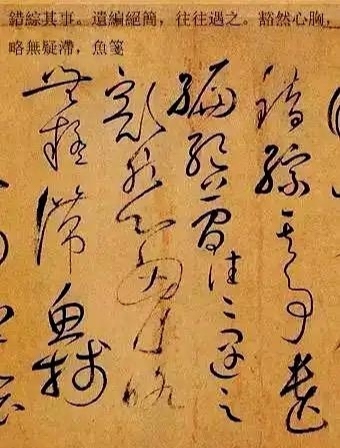 錯綜其事。遺編絕簡，往往遇之。豁然心胸，
略無疑滯，魚箋
錯綜其事遺
編絕簡往々遇之
豁然心胸略
無疑滯魚箋